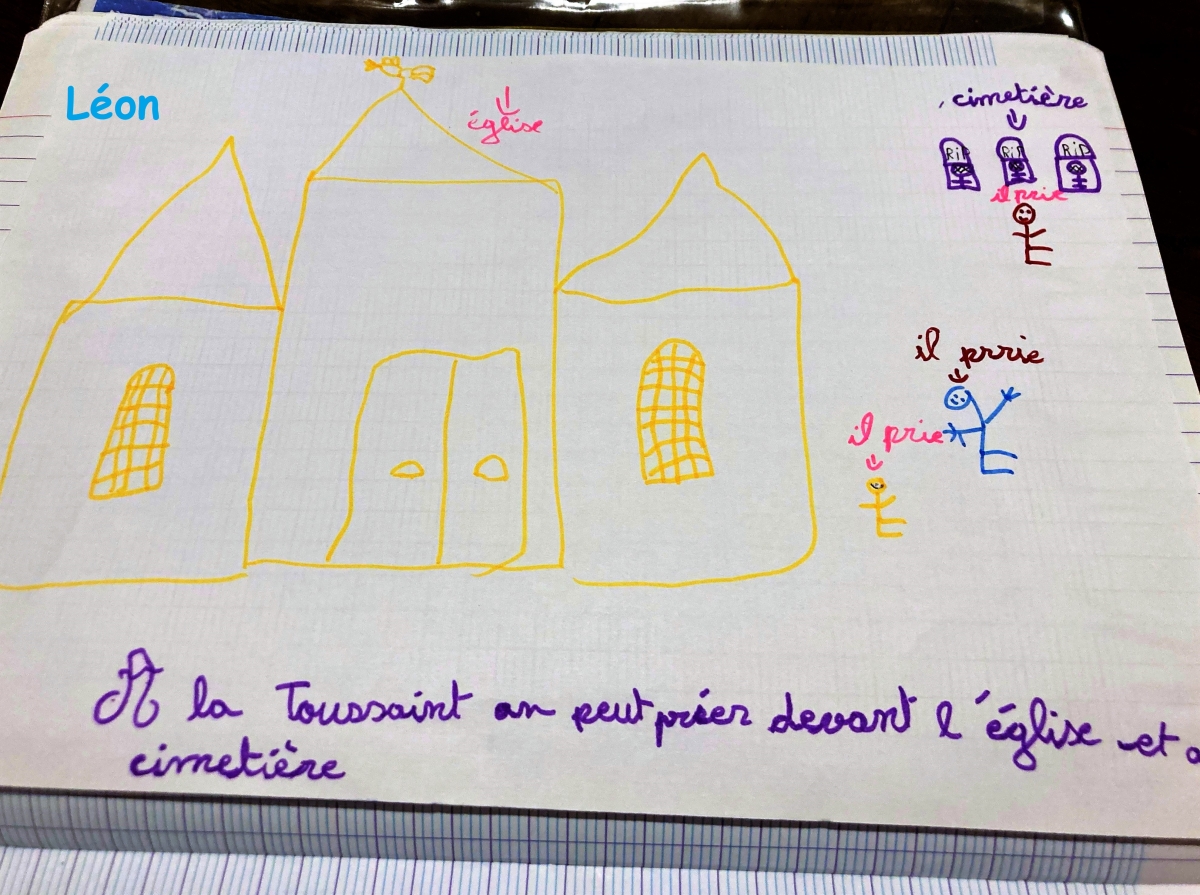 Léon
église
cimetière
RiP RiP RiP
il prie
il prrie
il prie
A la Toussaint an peut prier devant l'église et a
cimetière